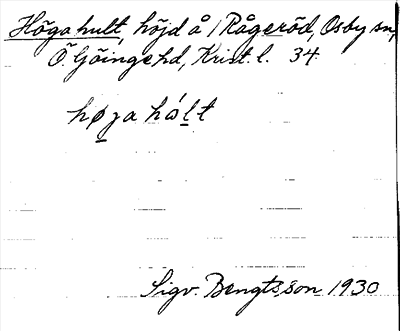 Högahult, höjd å 1 Rågeröd, Osby sn,
Ö. Göinge hd, Krist. l. 34
høga húlt
Sigv. Bengtsson 1930